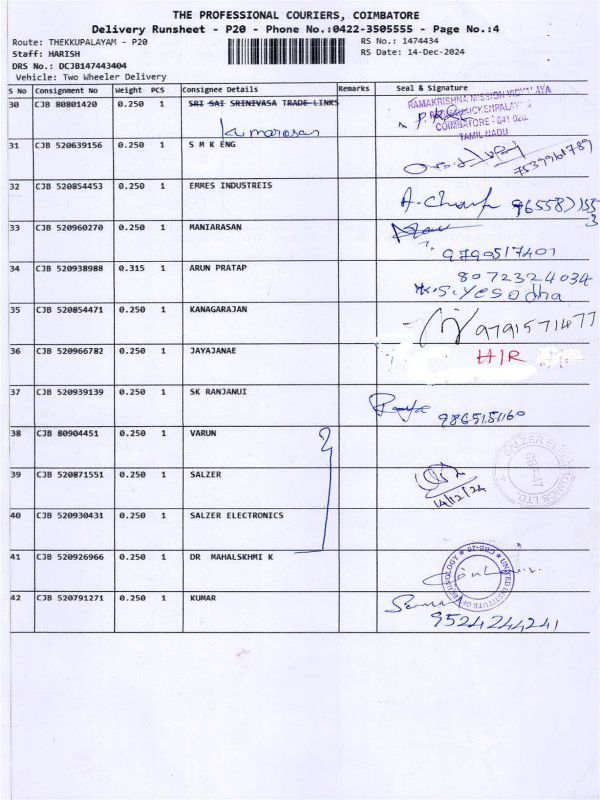 THE PROFESSIONAL COURIERS, COIMBATORE
Delivery Runsheet - P20 - Phone No.:0422-3505555 - Page No.:4
Route: THEKKUPALAYAM - P20
Staff: HARISH
DRS No.: DCJB147443404
Vehicle: Two Wheeler Delivery
RS No.: 1474434
RS Date: 14-Dec-2024
S No Consignment No Weight PCS Consignee Details Remarks Seal & Signature
30 CJB 80801420 0.250 1 SRI SAI SRINIVASA TRADE LINKS
Kumarasan
RAMAKRISHNA MISSION VIDYALAYA
COIMBATORE - 641 020.
TAMIL NADU
31 CJB 520639156 0.250 1 S M K ENG
7539961789
32 CJB 520854453 0.250 1 EMMES INDUSTREIS
33 CJB 520960270 0.250 1 MANIARASAN
9790517401
34 CJB 520938988 0.315 1 ARUN PRATAP
8072324034
K.S.Yesodha
35 CJB 520854471 0.250 1 KANAGARAJAN
9791571477
36 CJB 520966782 0.250 1 JAYAJANAE
H/R
37 CJB 520939139 0.250 1 SK RANJANUI
9865151160
38 CJB 80904451 0.250 1 VARUN
SALZER ELECTRONICS LTD.
CBE-47
39 CJB 520871551 0.250 1 SALZER
14/12/24
40 CJB 520930431 0.250 1 SALZER ELECTRONICS
41 CJB 520926966 0.250 1 DR MAHALSKHMI K
UNITED INSTITUTE OF TECHNOLOGY
CBE-20
42 CJB 520791271 0.250 1 KUMAR
9524244241